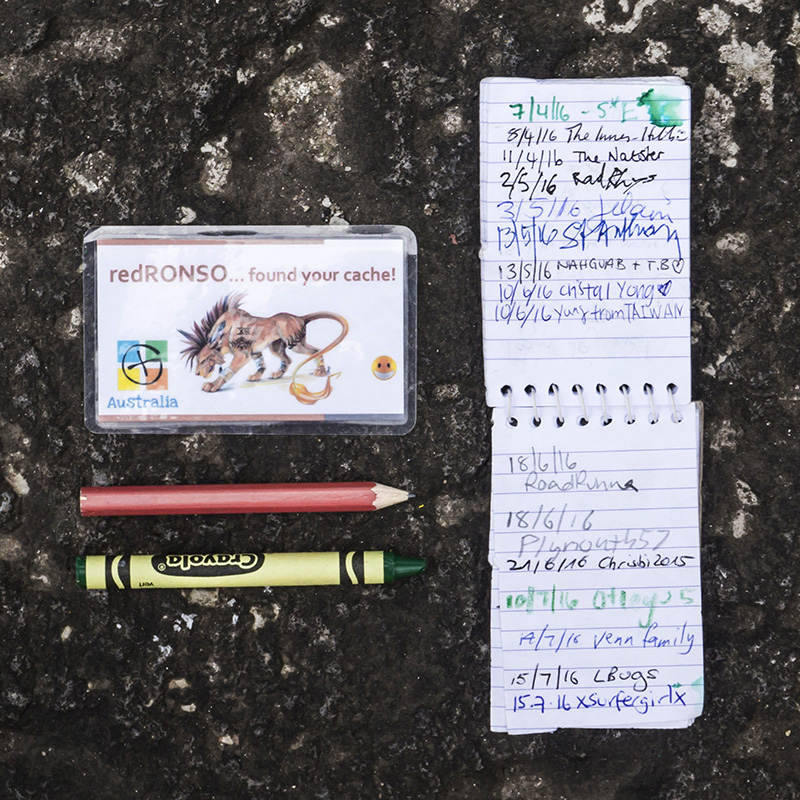 redRONSO... found your cache!
Australia
Crayola
7/4/16 - S*E
8/4/16 The Inner
11/4/16 The Natster
2/5/16
3/5/16
13/5/16
13/5/16 NAHGUAB + T.B♡
10/6/16 Cristal Yong♥
10/6/16 Yung from TAIWAN
18/6/16
RoadRunna
18/6/16
Plymouth57
21/6/16 Chrisbi2015
10/7/16
14/7/16 Venn family
15/7/16 LBugs
15.7.16 xsurfergirlx